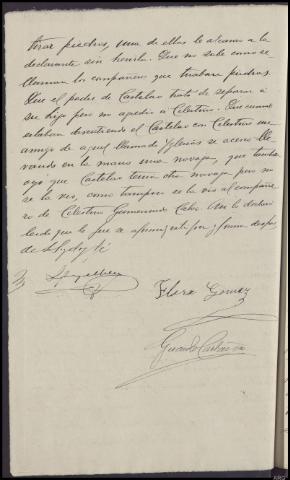 tirar piedras, una de ellas le alcanzo a la
declarante sin herirla. Que no sabe como se
llaman los compañeros que tiraban piedras.
Que el padre de Castelao trató de separar a
su hijo pero no agredir a Celestino. Que cuando
estaban discutiendo el Castelao con Celestino un
amigo de aquel llamado Yglesias se acerco lle-
vando en la mano una navaja, que tambien
oyó que Castelao tenia otra navaja pero no
se la vio, como tampoco se la vio al compañe-
ro de Celestino Gumersindo Cabo. Que lo declar-
ado que le fue se afirma ratifica y firma despues
de S.S. doy fé
Flora Gomez